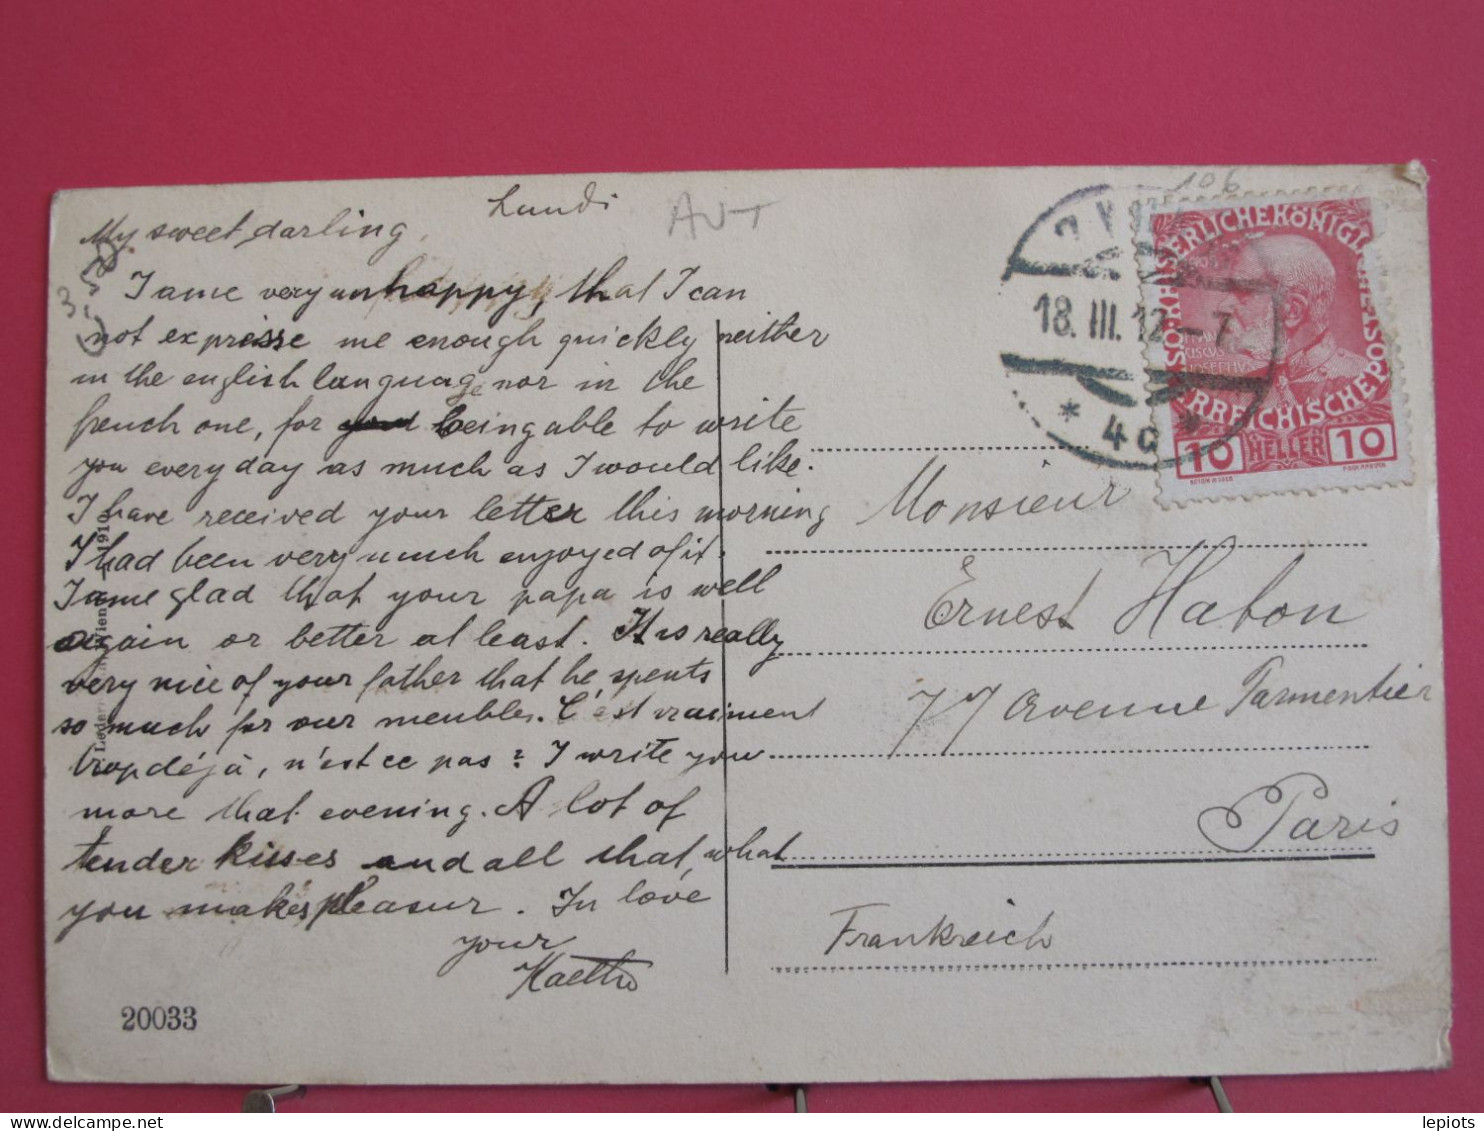 Lundi
AUT
My sweet darling,
I ame very unhappy, that I can
not expresse me enough quickly neither
in the english language nor in the
french one, for being able to write
you every day as much as I would like.
I have received your letter this morning
I had been very much enjoyed of it.
I ame glad that your papa is well
again or better at least. It is really
very nice of your father that he spents
so much for our meubles. C'est vraiment
trop déjà, n'est ce pas? I write you
more that evening. A lot of
tender kisses and all that, what
you makes pleasur. In love
your
Kaethe
20033
1910
106
18. III. 12 – 7
* 4c *
KAISERLICHE KÖNIGLICHE
ÖSTERREICHISCHE POST
FRAN
CISCVS
IOSEPHVS
10 HELLER 10
Monsieur
Ernest Habon
77 Avenue Parmentier
Paris
Frankreich
lepiots